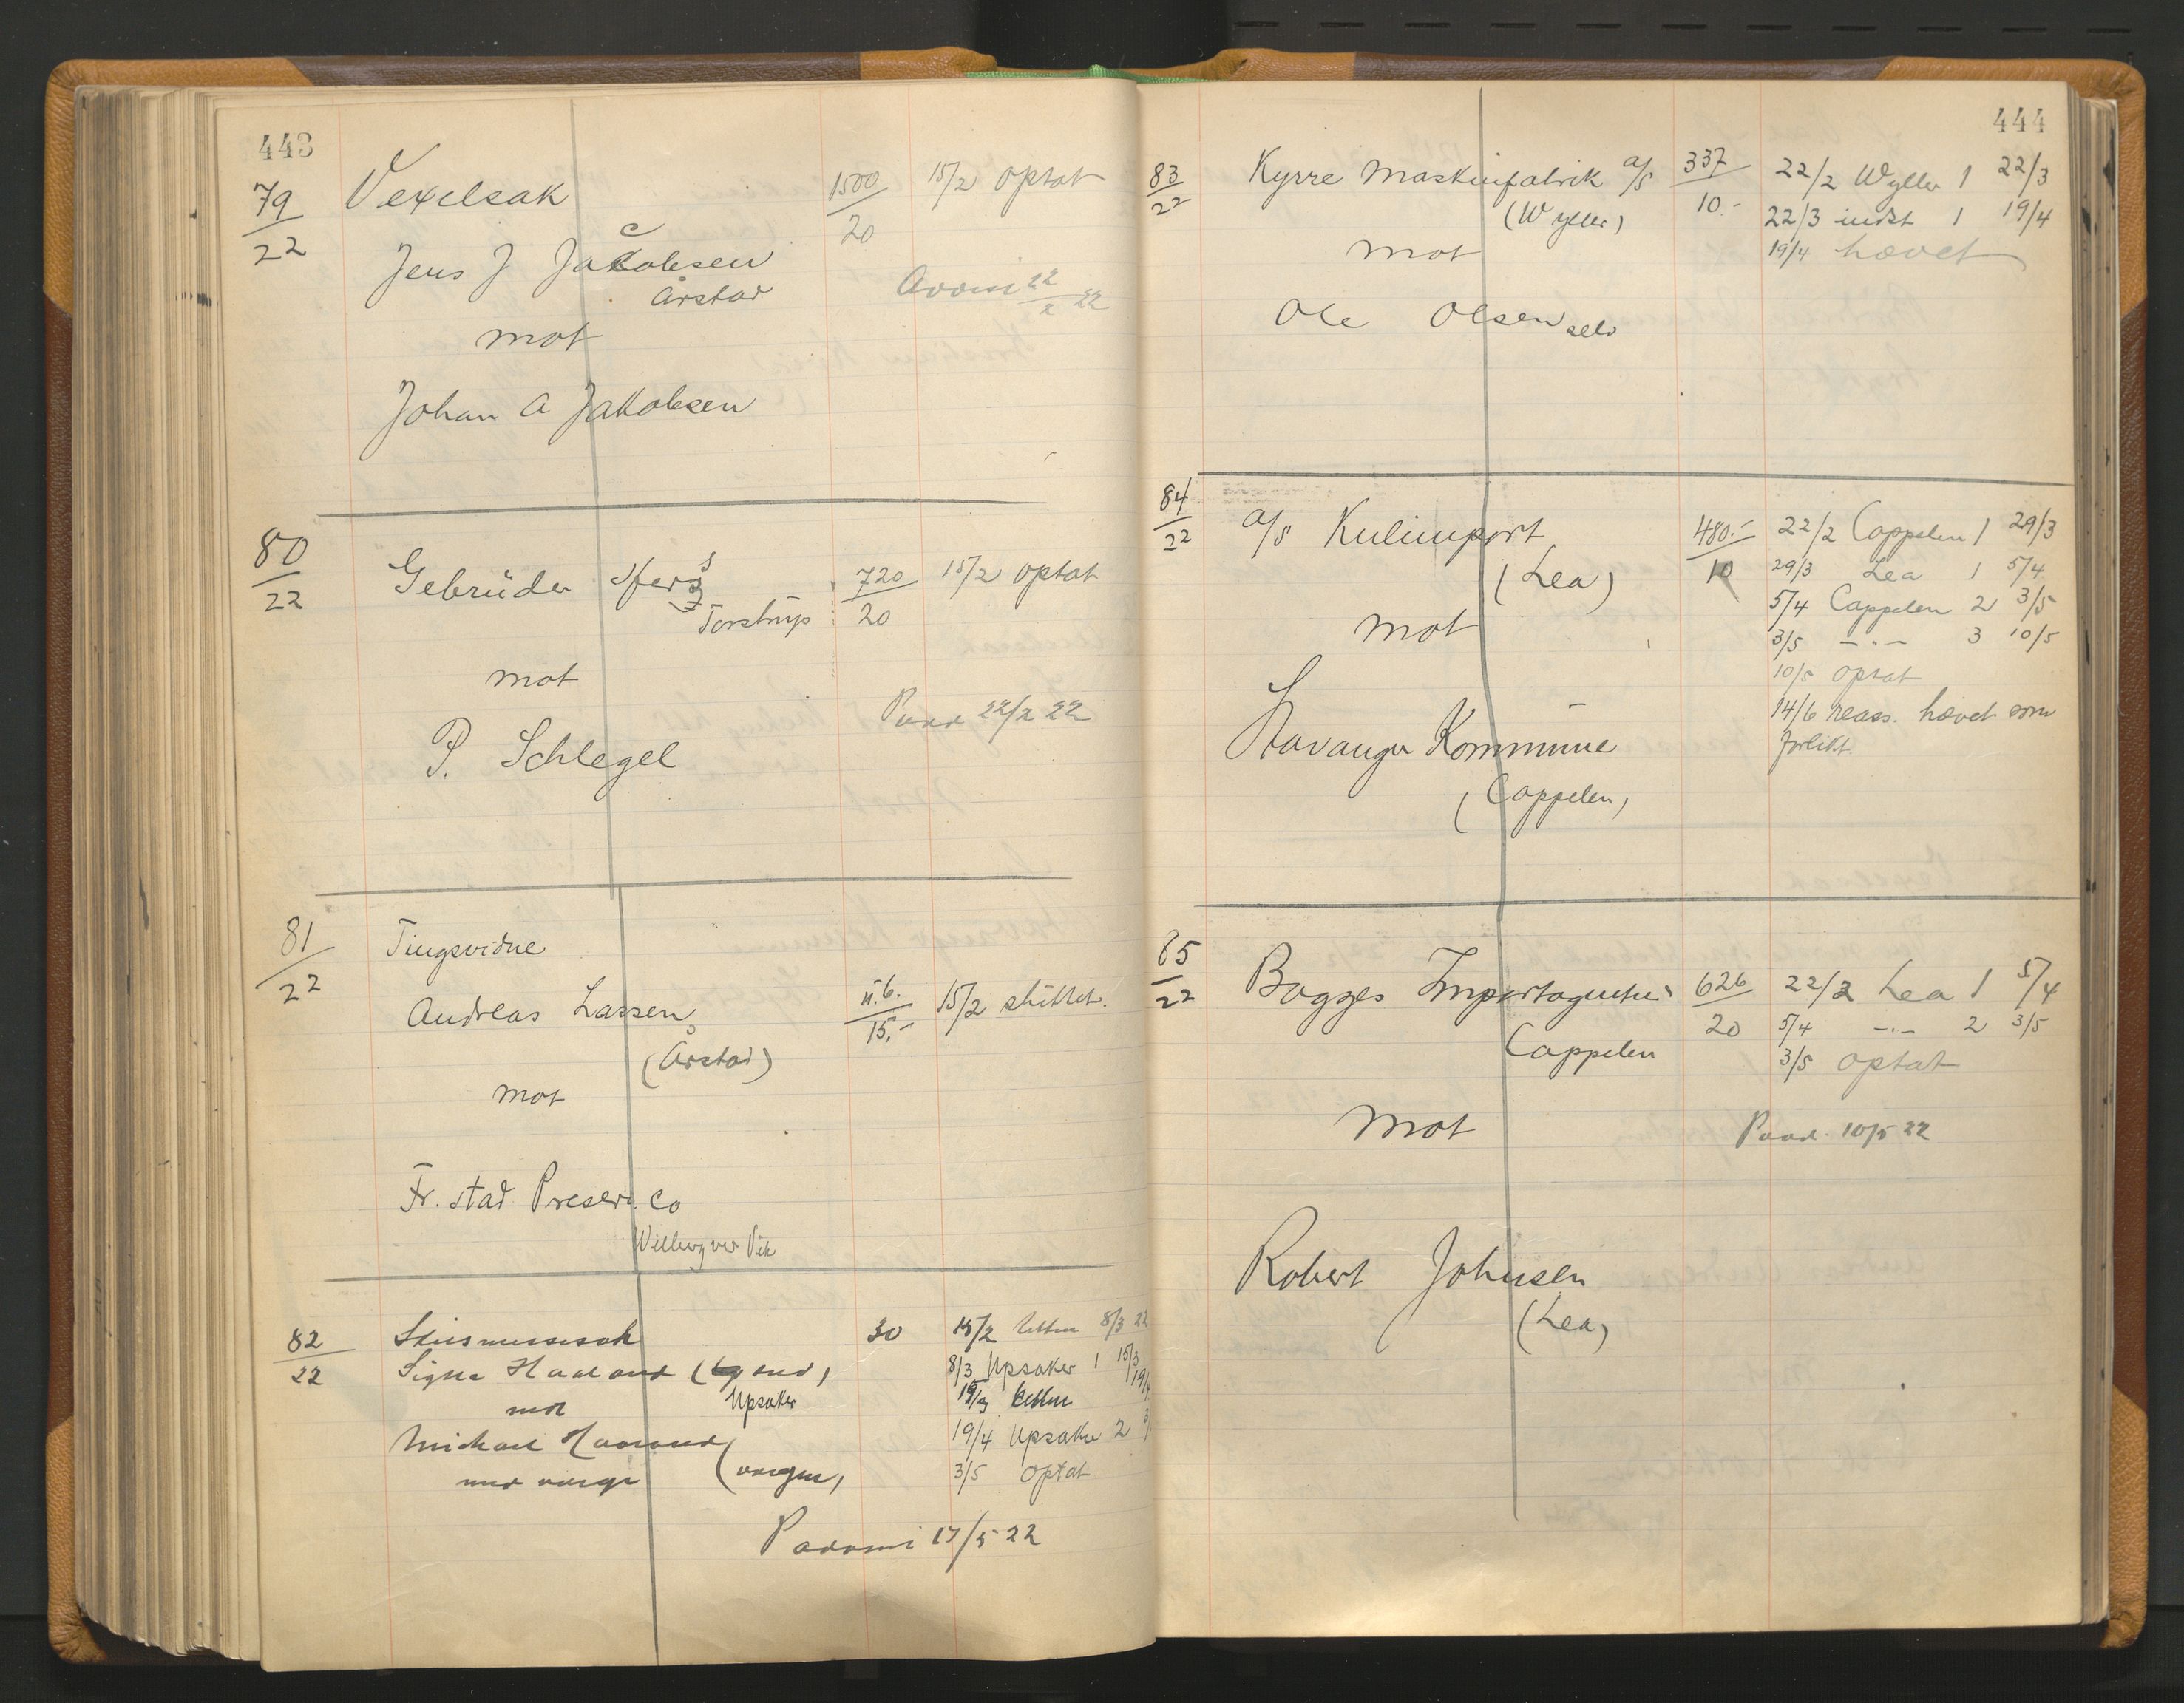 443
79
22
Vexelsak
1500
20
15/2 optat
c
Jens J Jacobsen
Årstad
22
2 22
mot
Johan A Jakobsen
80
22
Gebrüder
Torstrup
720
20
15/2 optat
mot
22/2 22
P. Schlegel
81
22
Tingsvidne
Andreas Lassen
(Årstad)
u.b.
15,-
15/2 sluttet.
mot
Fr. stad Preserv. Co
82
22
30
15/2 8/3 22
Signe Haaland
Upsaker
8/3 Upsaker 1 15/3
15/3 19/4
mot
Michael Haaland
med verge
(vergen)
19/4 Upsaker 2 3/
3/5 optat
17/5 22
444
83
22
Kyrre Maskinfabrik A/S
(Wyller)
337
10.-
22/2 Wyller 1 22/3
22/3 indst 1 19/4
19/4 hævet
mot
Ole Olsen selv
84
22
A/S Kulimport
(Lea)
480.-
10
22/2 Cappelen 1 29/3
29/3 Lea 1 5/4
5/4 Cappelen 2 3/5
3/5 -.- 3 10/5
10/5 optat
14/6 reass. hævet som
forlikt.
mot
Stavanger Kommune
(Cappelen)
85
22
Bogges Importagentur
Cappelen
626
20
22/2 Lea 1 5/4
5/4 -.- 2 3/5
3/5 optat
mot
10/5 22
Robert Johnsen
(Lea)